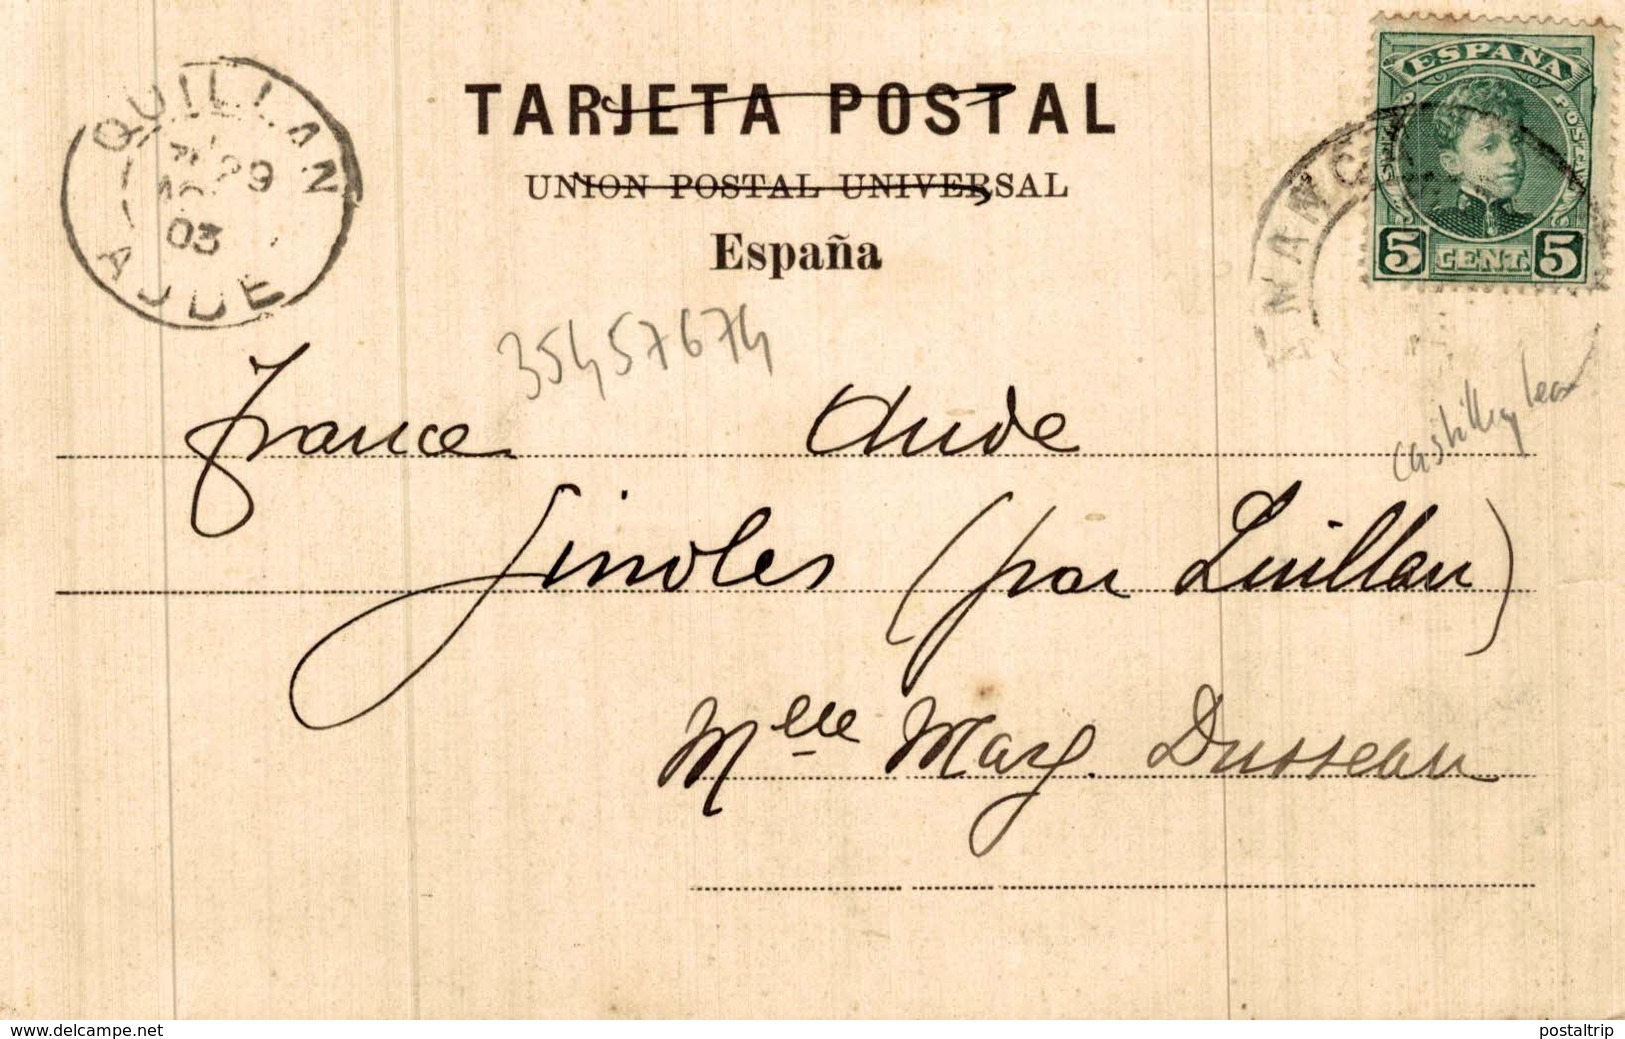 TARJETA POSTAL
UNION POSTAL UNIVERSAL
España
QUILLAN
29
03
AUDE
ESPAÑA
5 CENT. 5
35457674
Castilla y leon
France Aude
Ginoles (par Quillan)
Mlle Marg. Dusseau
www.delcampe.net
postaltrip